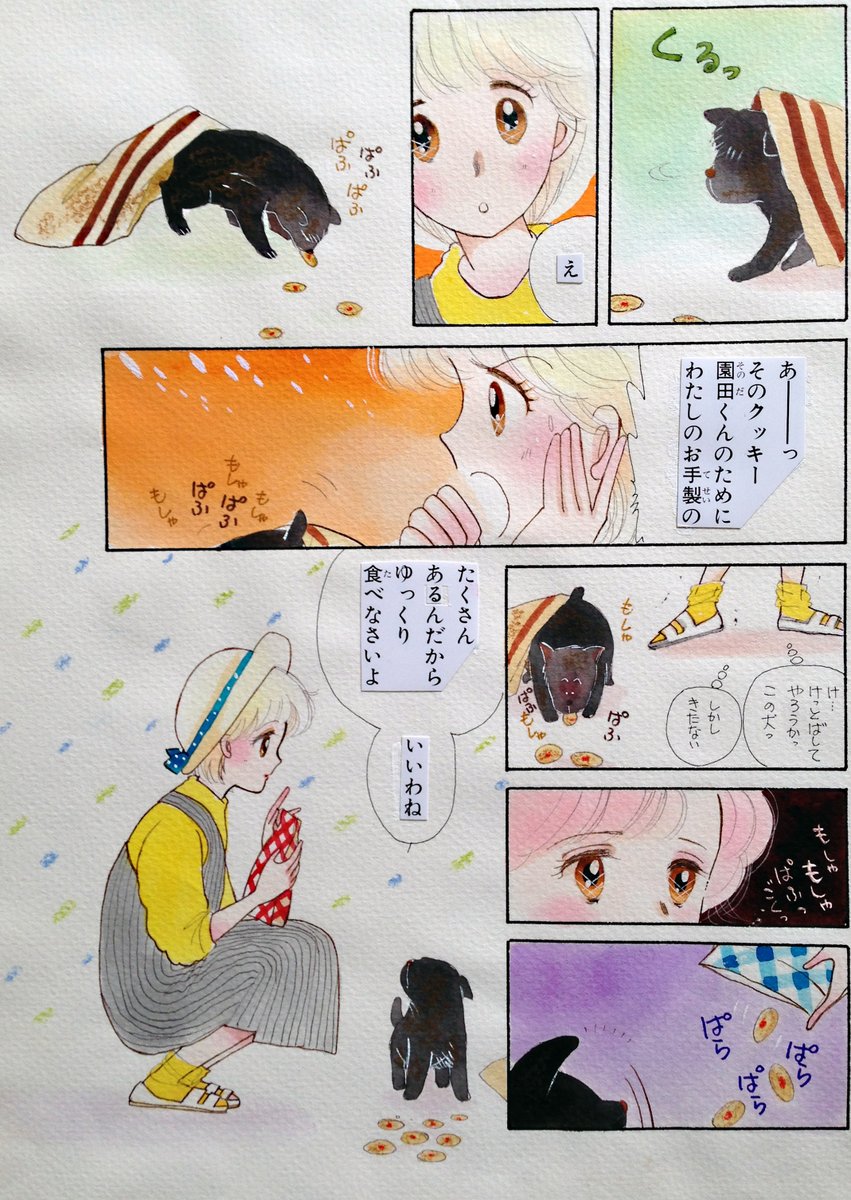 くるっ
え
ぱふ
ぱふ
ぱふ
あ――っ
そのクッキー
園田くんのために
わたしのお手製の
もしゃ
もしゃ
ぱふ
ぱふ
もしゃ
け…
けっとばして
やろうかっ
この犬っ
しかし
きたない
もしゃ
ぱふ
ぱふ
もしゃ
もしゃ
もしゃ
ぱふっ
ごくっ
ぱら
ぱら
ぱら
たくさん
あるんだから
ゆっくり
食べなさいよ
いいわね